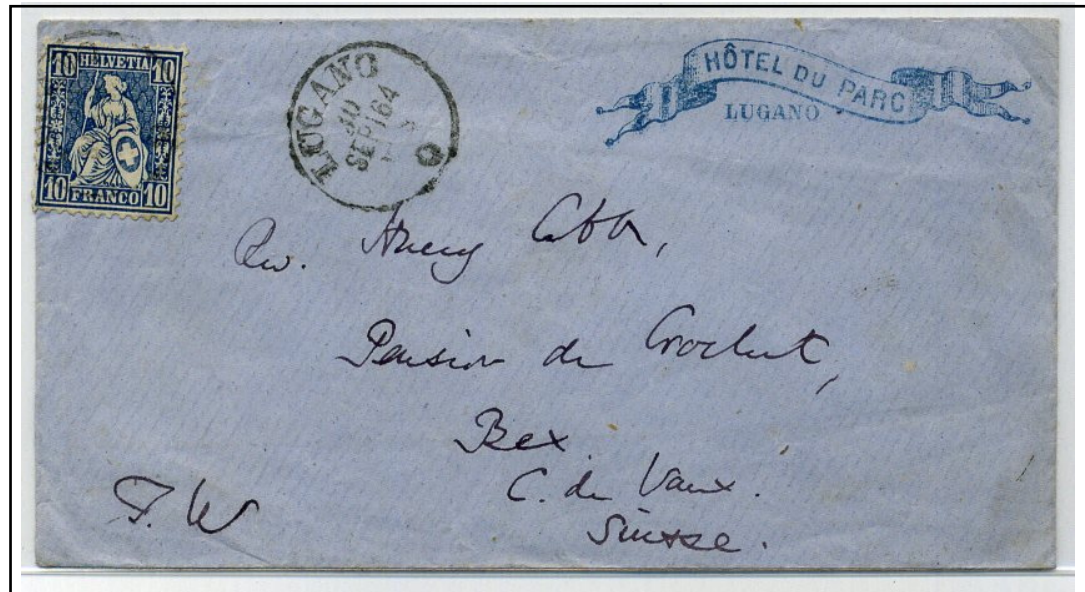 10 HELVETIA 10
10 FRANCO 10
LUGANO
30
SEPT 64
HÔTEL DU PARC
LUGANO
Rev. Henry Cobb,
Pension du Crochet,
Bex.
C. de Vaux.
Suisse.
F. W